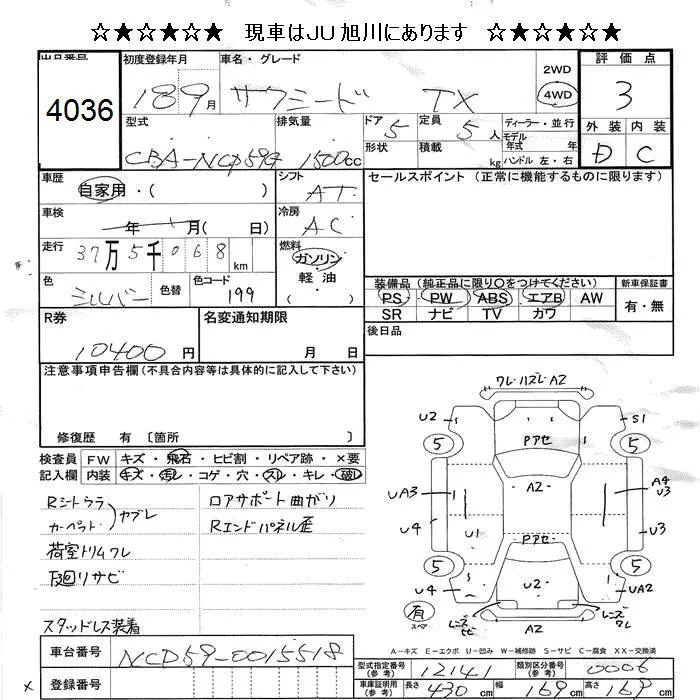 ☆★☆★☆★ 現車はＪＵ旭川にあります ☆★☆★☆★
出品番号 初度登録年月 車名・グレード 2WD 評価点
4036 18 9月 サクシード TX 4WD 3
型式 排気量 ドア 定員 ディーラー・並行 外装 内装
CBA-NCP59G 1500cc 5 5人 モデル年式 年 D C
形状 積載 kg ハンドル 左・右
車歴 シフト セールスポイント (正常に機能するものに限ります)
自家用・( ) AT
車検 冷房
年 月( 日) AC
走行 37万5千068km 燃料
ガソリン
軽油
( )
色 色替 色コード
シルバー 199
装備品 (純正品に限り○をつけてください) 新車保証書
PS PW ABS エアB AW 有・無
SR ナビ TV カワ
R券 名変通知期限 後日品
10400円 月 日
注意事項申告欄(不具合内容等は具体的に記入して下さい)
修復歴 有 〔箇所 〕
検査員 FW キズ・飛石・ヒビ割・リペア跡・×要
記入欄 内装 キズ・汚レ・コゲ・穴・スレ・キレ・破レ
Rシトウラ ロアサポート曲がり
カーペット ヤブレ Rエンドパネル歪
荷室トリムワレ
下廻リサビ
スタッドレス装着
ワレ・ハズレ A2
U2 S1
5 Pアセ 5
A2
UA3 A4 U3
U4 U1 U3
Pアセ
5 A2 5
U4 U2 UA2
有 スペア レンズヒビ レンズワレ
A－キズ E－エクボ U－凹み W－補修跡 S－サビ C－腐食 XX－交換済
車台番号 NCP59-0015518
登録番号
型式指定番号(参考) 12141 類別区分番号(参考) 0006
車庫証明用(参考) 長さ 430cm 幅 169cm 高さ